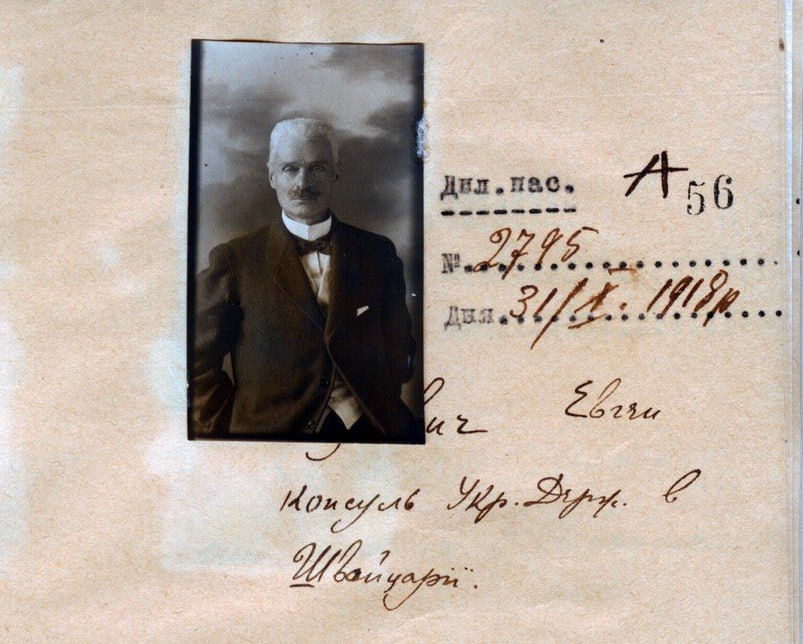 Дип. пас. А 56
№ 2795
Дня 31/X. 1918р
Евген
Консуль Укр. Держ. в
Швайцарії.